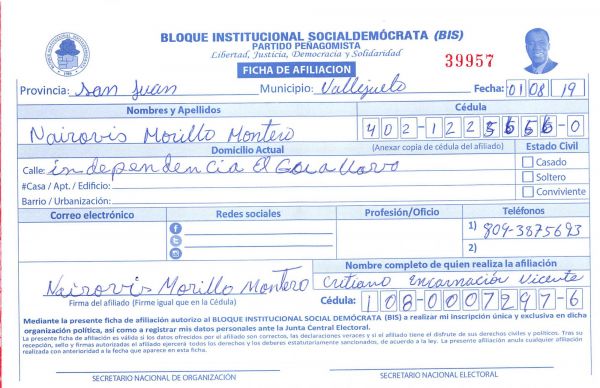 BLOQUE INSTITUCIONAL SOCIALDEMÓCRATA (BIS)
PARTIDO PEÑAGOMISTA
Libertad, Justicia, Democracia y Solidaridad
39957
FICHA DE AFILIACION
Provincia: San Juan Municipio: Vallejuelo Fecha: 01 08 19
Nombres y Apellidos Cédula
Nairovis Morillo Montero 402-122
Domicilio Actual (Anexar copia de cédula del afiliado) Estado Civil
Calle: independencia El
Casado
#Casa / Apt. / Edificio:
Soltero
Barrio / Urbanización:
Conviviente
Correo electrónico Redes sociales Profesión/Oficio Teléfonos
1) 809-3875693
2)
Nombre completo de quien realiza la afiliación
Nairovis Morillo Montero Critiano Encarnación Vicente
Firma del afiliado (Firme igual que en la Cédula) Cédula: 108-0007297-6
Mediante la presente ficha de afiliación autorizo al BLOQUE INSTITUCIONAL SOCIAL DEMÓCRATA (BIS) a realizar mi inscripción única y exclusiva en dicha
organización política, así como a registrar mis datos personales ante la Junta Central Electoral.
La presente ficha de afiliación es válida si los datos ofrecidos por el afiliado son correctos, las declaraciones veraces y si el afiliado tiene el disfrute de sus derechos civiles y políticos. Tras su
recepción, sello y firmas autorizadas el afiliado ejercerá todos los derechos y los deberes estatutariamente sancionados, de acuerdo a la ley. La presente afiliación anula cualquier afiliación
realizada con anterioridad a la fecha que aparece en esta ficha.
SECRETARIO NACIONAL DE ORGANIZACIÓN SECRETARIO NACIONAL ELECTORAL